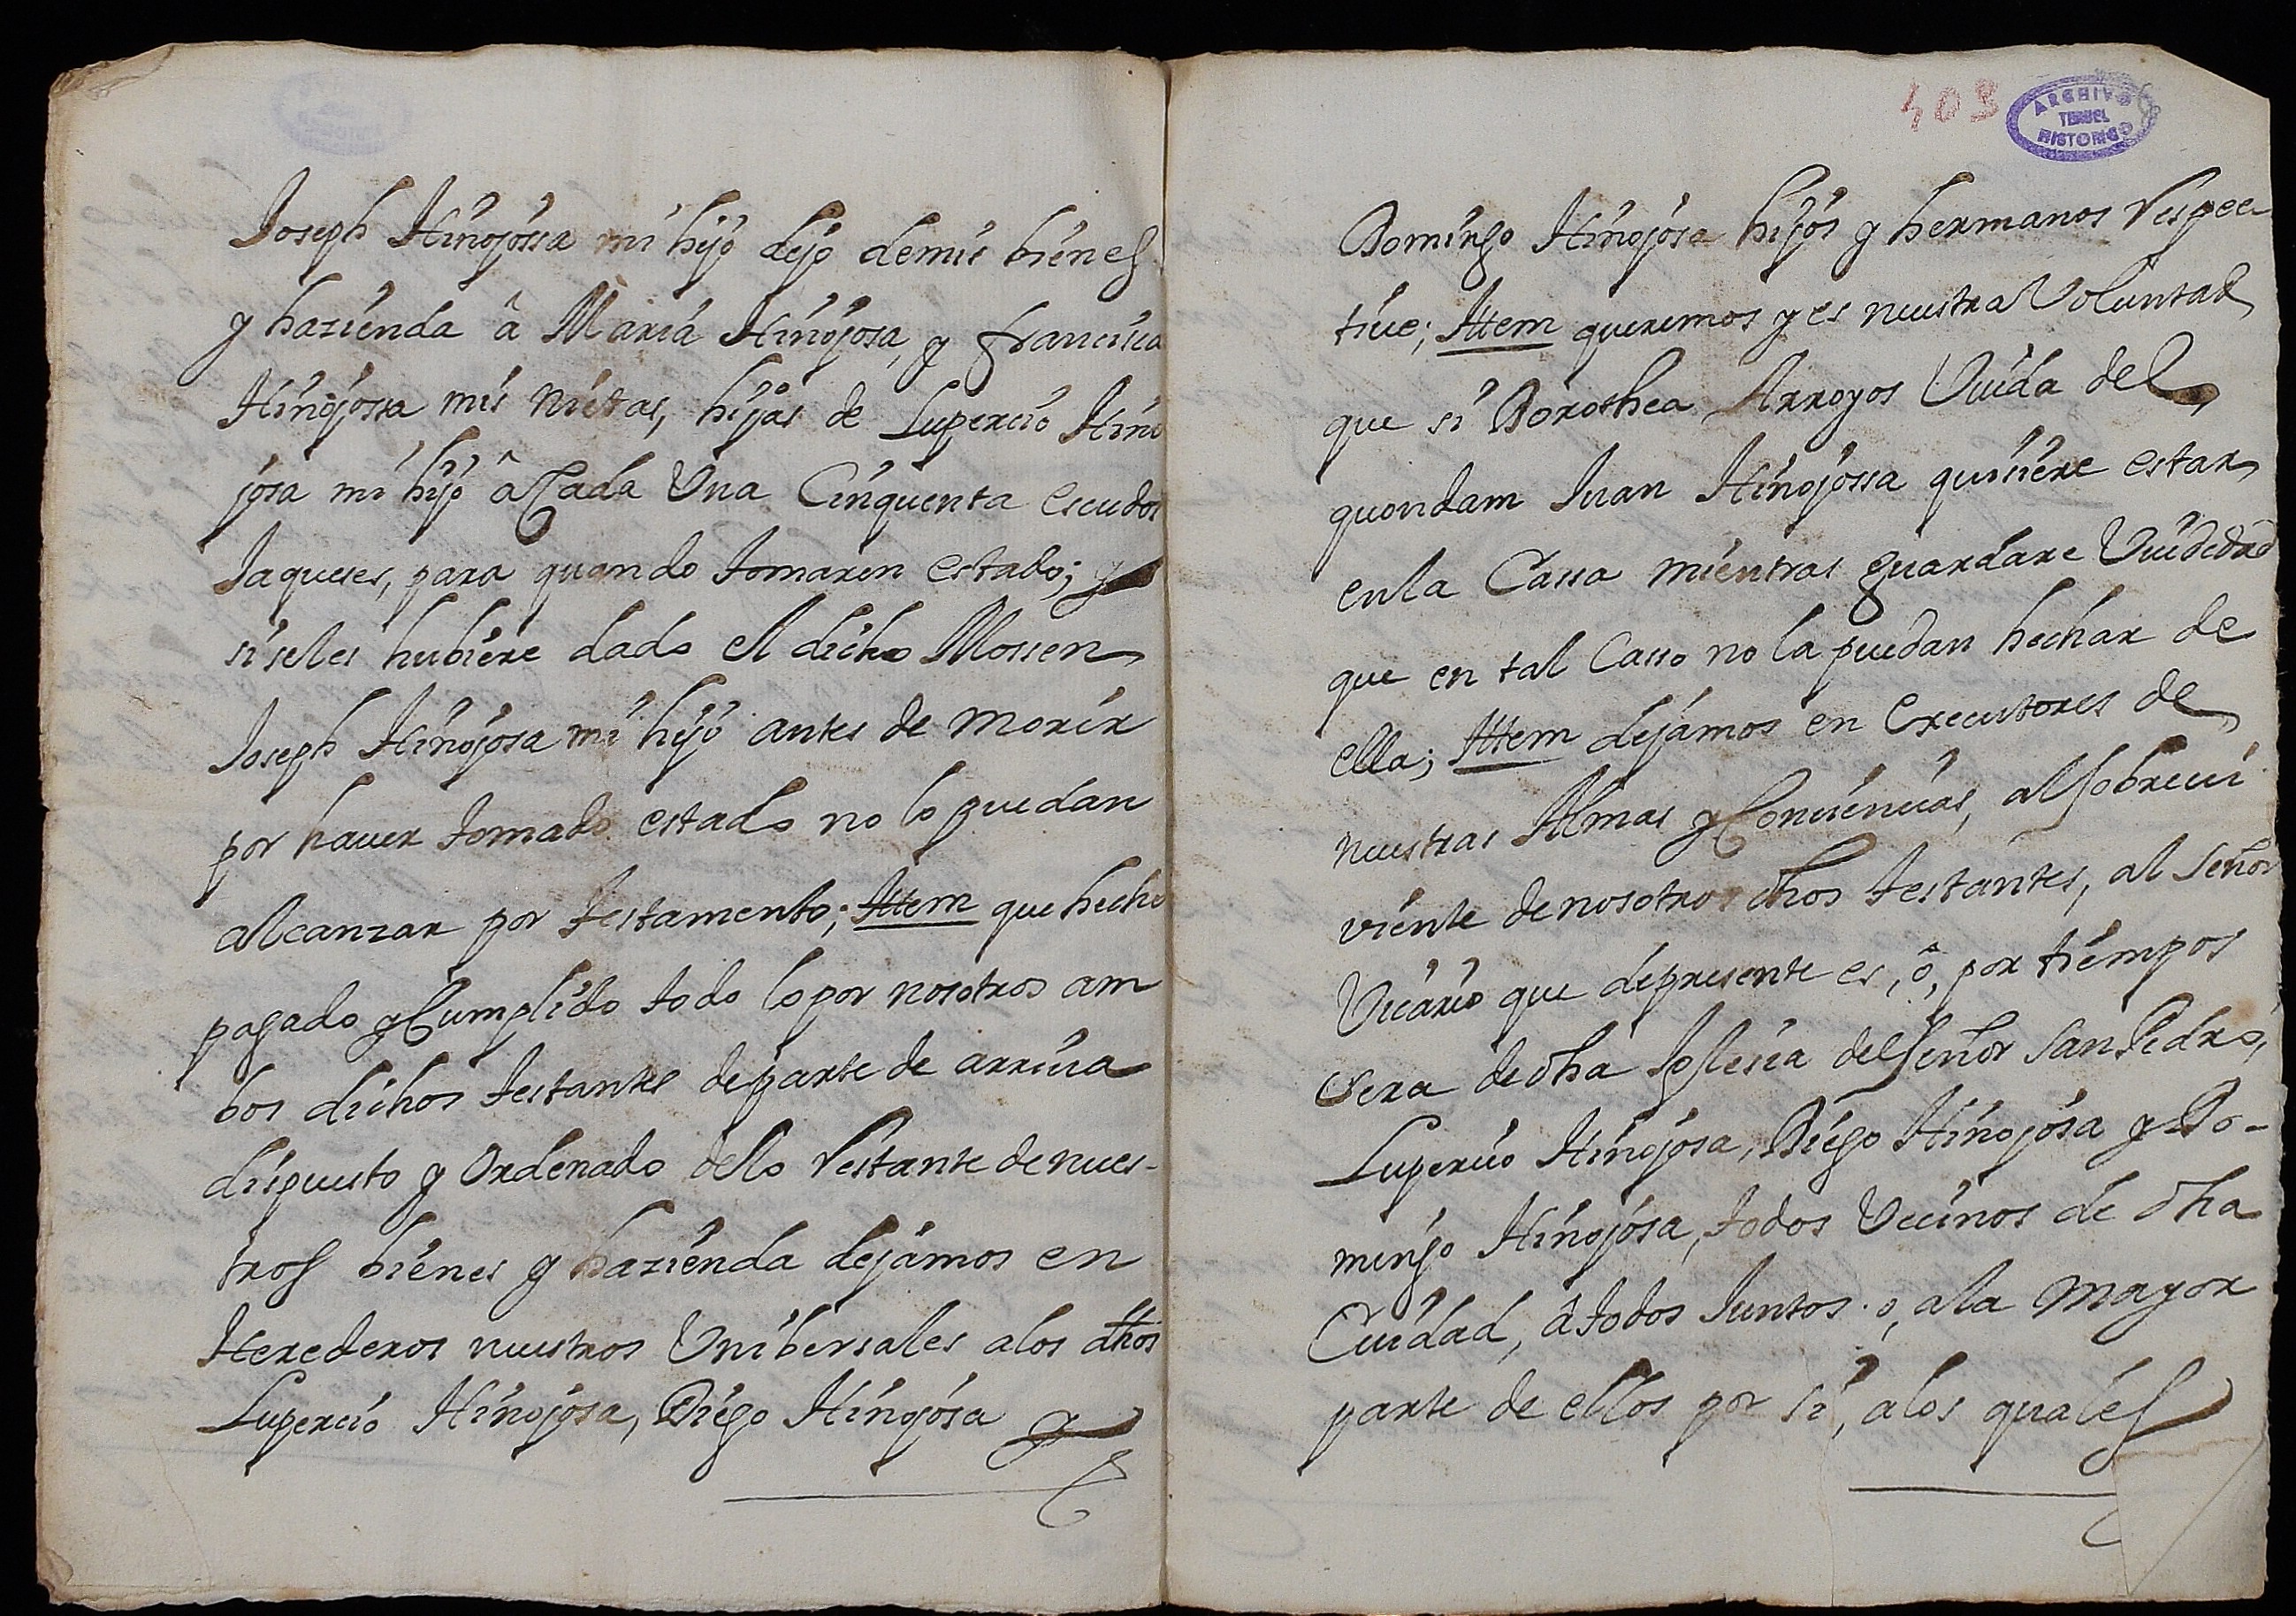 Joseph Hinojossa mi hijo dejo demis bienes
y hazienda â Maria Hinojosa, y francisca
Hinojossa mis nietas, hijas de Lupercio Hino
josa mi hijo â Cada Una Cinquenta escudos
Jaqueses, para quando tomaren estado; y
si seles hubiere dado el dicho Mossen
Joseph Hinojosa mi hijo antes de morir
por hauer tomado estado no lo puedan
alcanzar por testamento; Ittem que hecho
pagado y Cumplido todo lo por nosotros am
bos dichos testantes departe de arriua
dispuesto y Ordenado dello restante de nues-
tros bienes y hazienda dejamos en
Herederos nuestros Unibersales alos dhos
Lupercio Hinojosa, Diego Hinojosa y
403
ARCHIVO
TERUEL
HISTORICO
Domingo Hinojosa hijos y hermanos respec-
tiue; Ittem queremos y es nuestra Voluntad
que si Dorothea Arroyos Uiuda del
quondam Juan Hinojossa quisiere estar
enla Cassa mientras guardare Uiudedad
que en tal Casso no la puedan hechar de
ella; Ittem dejamos en Executores de
nuestras Almas y Conciencias, al sobreui
viente de nosotros dhos testantes, al señor
Vicario que depresente es, ô, por tiempos
sera de dha Iglesia del señor San Pedro,
Lupercio Hinojosa, Diego Hinojosa y Do-
mingo Hinojosa, todos Vecinos de dha
Ciudad, â todos Juntos o, ala mayor
parte de ellos por si, alos quales